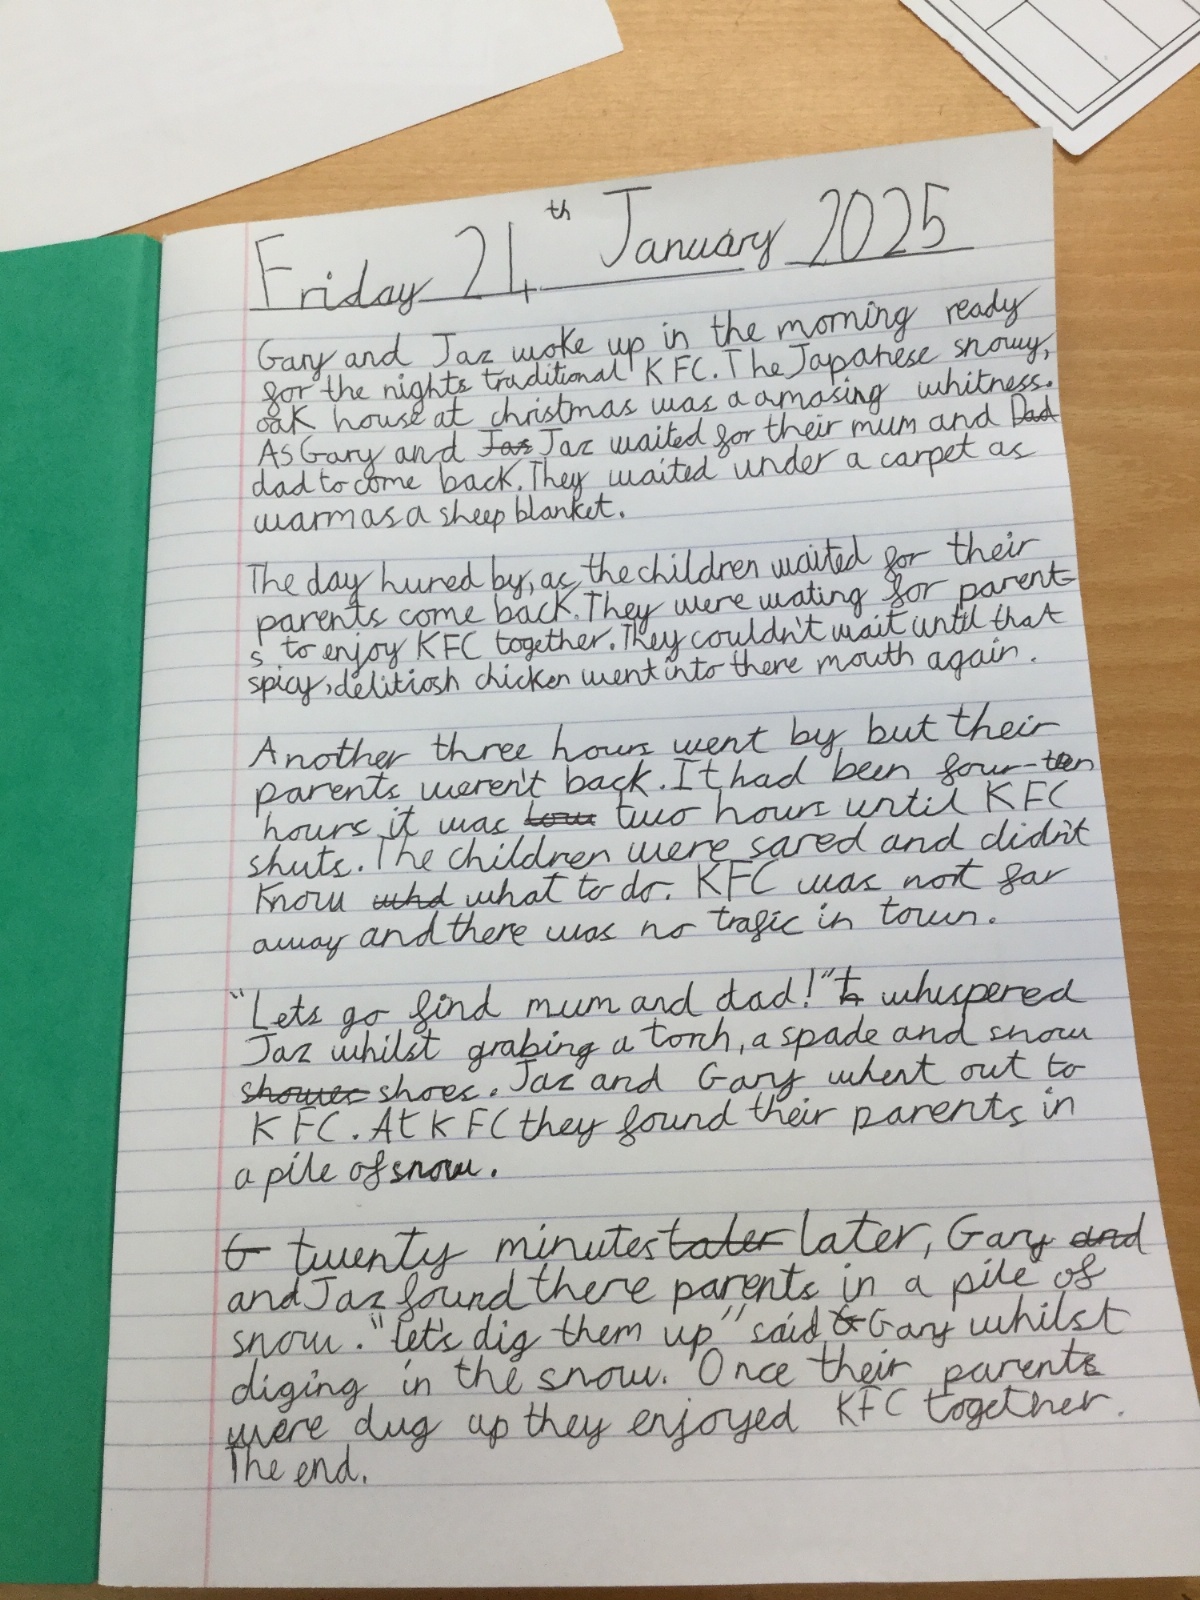 Friday 24th January 2025
Gary and Jaz woke up in the morning ready
for the nights traditional KFC. The Japanese snowy,
oak house at christmas was a amasing whitness.
As Gary and Jaz Jaz waited for their mum and Dad
dad to come back. They waited under a carpet as
warm as a sheep blanket.
The day hured by, as the children waited for their
parents come back. They were wating for parent
s to enjoy KFC together. They couldn't wait until that
spicy, delitiosh chicken went into there mouth again.
Another three hours went by but their
parents weren't back. It had been four-ten
hours it was two hours until KFC
shuts. The children were sared and didn't
know whd what to do. KFC was not far
away and there was no trafic in town.
"Lets go find mum and dad!" whispered
Jaz whilst grabing a torch, a spade and snow
shower shoes. Jaz and Gary whent out to
KFC. At KFC they found their parents in
a pile of snow.
G twenty minutes later later, Gary and
and Jaz found there parents in a pile of
snow. "let's dig them up" said G Gary whilst
diging in the snow. Once their parents
were dug up they enjoyed KFC together.
The end.